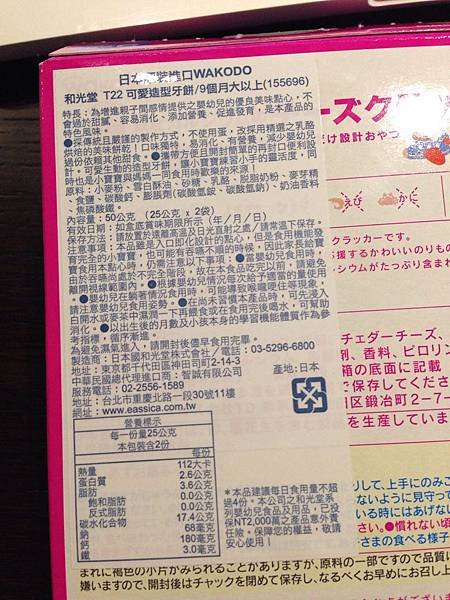 日本原裝進口WAKODO
和光堂 T22 可愛造型牙餅/9個月大以上(155696)
特長：為增進親子間感情提供之嬰幼兒的優良美味點心，不
會過於甜膩、容易消化，添加營養、促進發育，是本商品的
特色風味。
●採傳統且嚴謹的製作方式，不使用蛋，改採用精選之乳酪
烘焙的美味餅乾！口味獨特，易消化、有營養，減少嬰幼兒
過份依賴其他甜食。●攜帶方便且開封簡單的再封口便利設
計。可愛生動的造型牙餅，讓小寶寶練習小手的靈活度，同
時也是小寶寶與媽媽一同食用時歡樂的來源！
原料：小麥粉、雪白酥油、砂糖、乳酪、脫脂奶粉、麥芽精
、食鹽、碳酸鈣、膨脹劑(碳酸氫銨、碳酸氫鈉)、奶油香料
、焦磷酸鐵。
內容量：50公克 (25公克 x 2袋)
有效日期：如盒底賞味期限所示（年／月／日）
保存方法：請放置於遠離高溫及日光直射之處/請常溫下保存。
注意事項：本品雖是入口即化設計的點心，但是食用機能發
育完全的小寶寶，也可能有吞嚥不順的時候，因此家長給寶
寶食用本點心時，仍需注意以下事項：●當嬰幼兒食用時，
由於吞嚥尚處於不完全階段，故在本食品吃完以前，請避免
離開視線範圍內。●使用時請依嬰幼兒情況每次給予適當的量使用
。●嬰幼兒在躺著情況食用時，可能導致喉嚨哽住等現象，
請注意嬰幼兒食用姿勢。●在尚未習慣本產品時，可先浸入
白開水或麥茶中濕潤一下再餵食或在食用完後喝水，可幫助
消化。●以出生後的月數及小孩本身的學習機能體質作為參
考指標，循序漸進。
為避免濕氣進入，請開封後儘早食用完畢。
製造商：日本國和光堂株式会社／電話：03-5296-6800
地址：東京都千代田區神田司町2-14-3
中華民國總代理進口商：智誠有限公司
服務電話：02-2556-1589 產地:日本
地址：台北市重慶北路一段30號11樓
網址：www.eassica.com.tw
營養標示
每一份量25公克
本包裝含2份
每份
熱量 112大卡
蛋白質 2.6公克
脂肪 3.6公克
飽和脂肪 0.0公克
反式脂肪 0.0公克
碳水化合物 17.4公克
鈉 68毫克
鈣 180毫克
鐵 3.0毫克
＊本品建議每日食用量不超
過4份。本公司之和光堂系
列嬰幼兒食品及用品，已投
保NT2,000萬之產品意外責
任險，保障您的權益，敬請
安心使用。
ーズク
け設計おやつ
えび
かに
クラッカーです。
援するかわいいのりもの
シウムがたっぷり含まれ
チェダーチーズ、
剤、香料、ピロリン
箱の底面に記載
で保存してください
区鍛冶町2-7-
を生産していま
りして、上手にのみこ
ないように見守って
いる時にはあげない
ださい。●慣れない頃
子さまの食べる様子
まれに褐色の小片がみられることがありますが、原料の一部ですので品質に
嫌いますので、開封後はチャックを閉めて保存し、なるべくお早めにお召し上